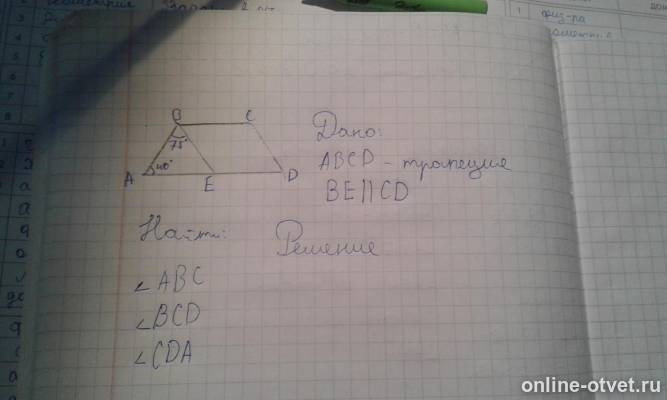 1 физ-ра
B C
75°
40°
A E D
Дано:
ABCD - трапеция
BE||CD
Найти:
Решение
∠ABC
∠BCD
∠CDA
online-otvet.ru